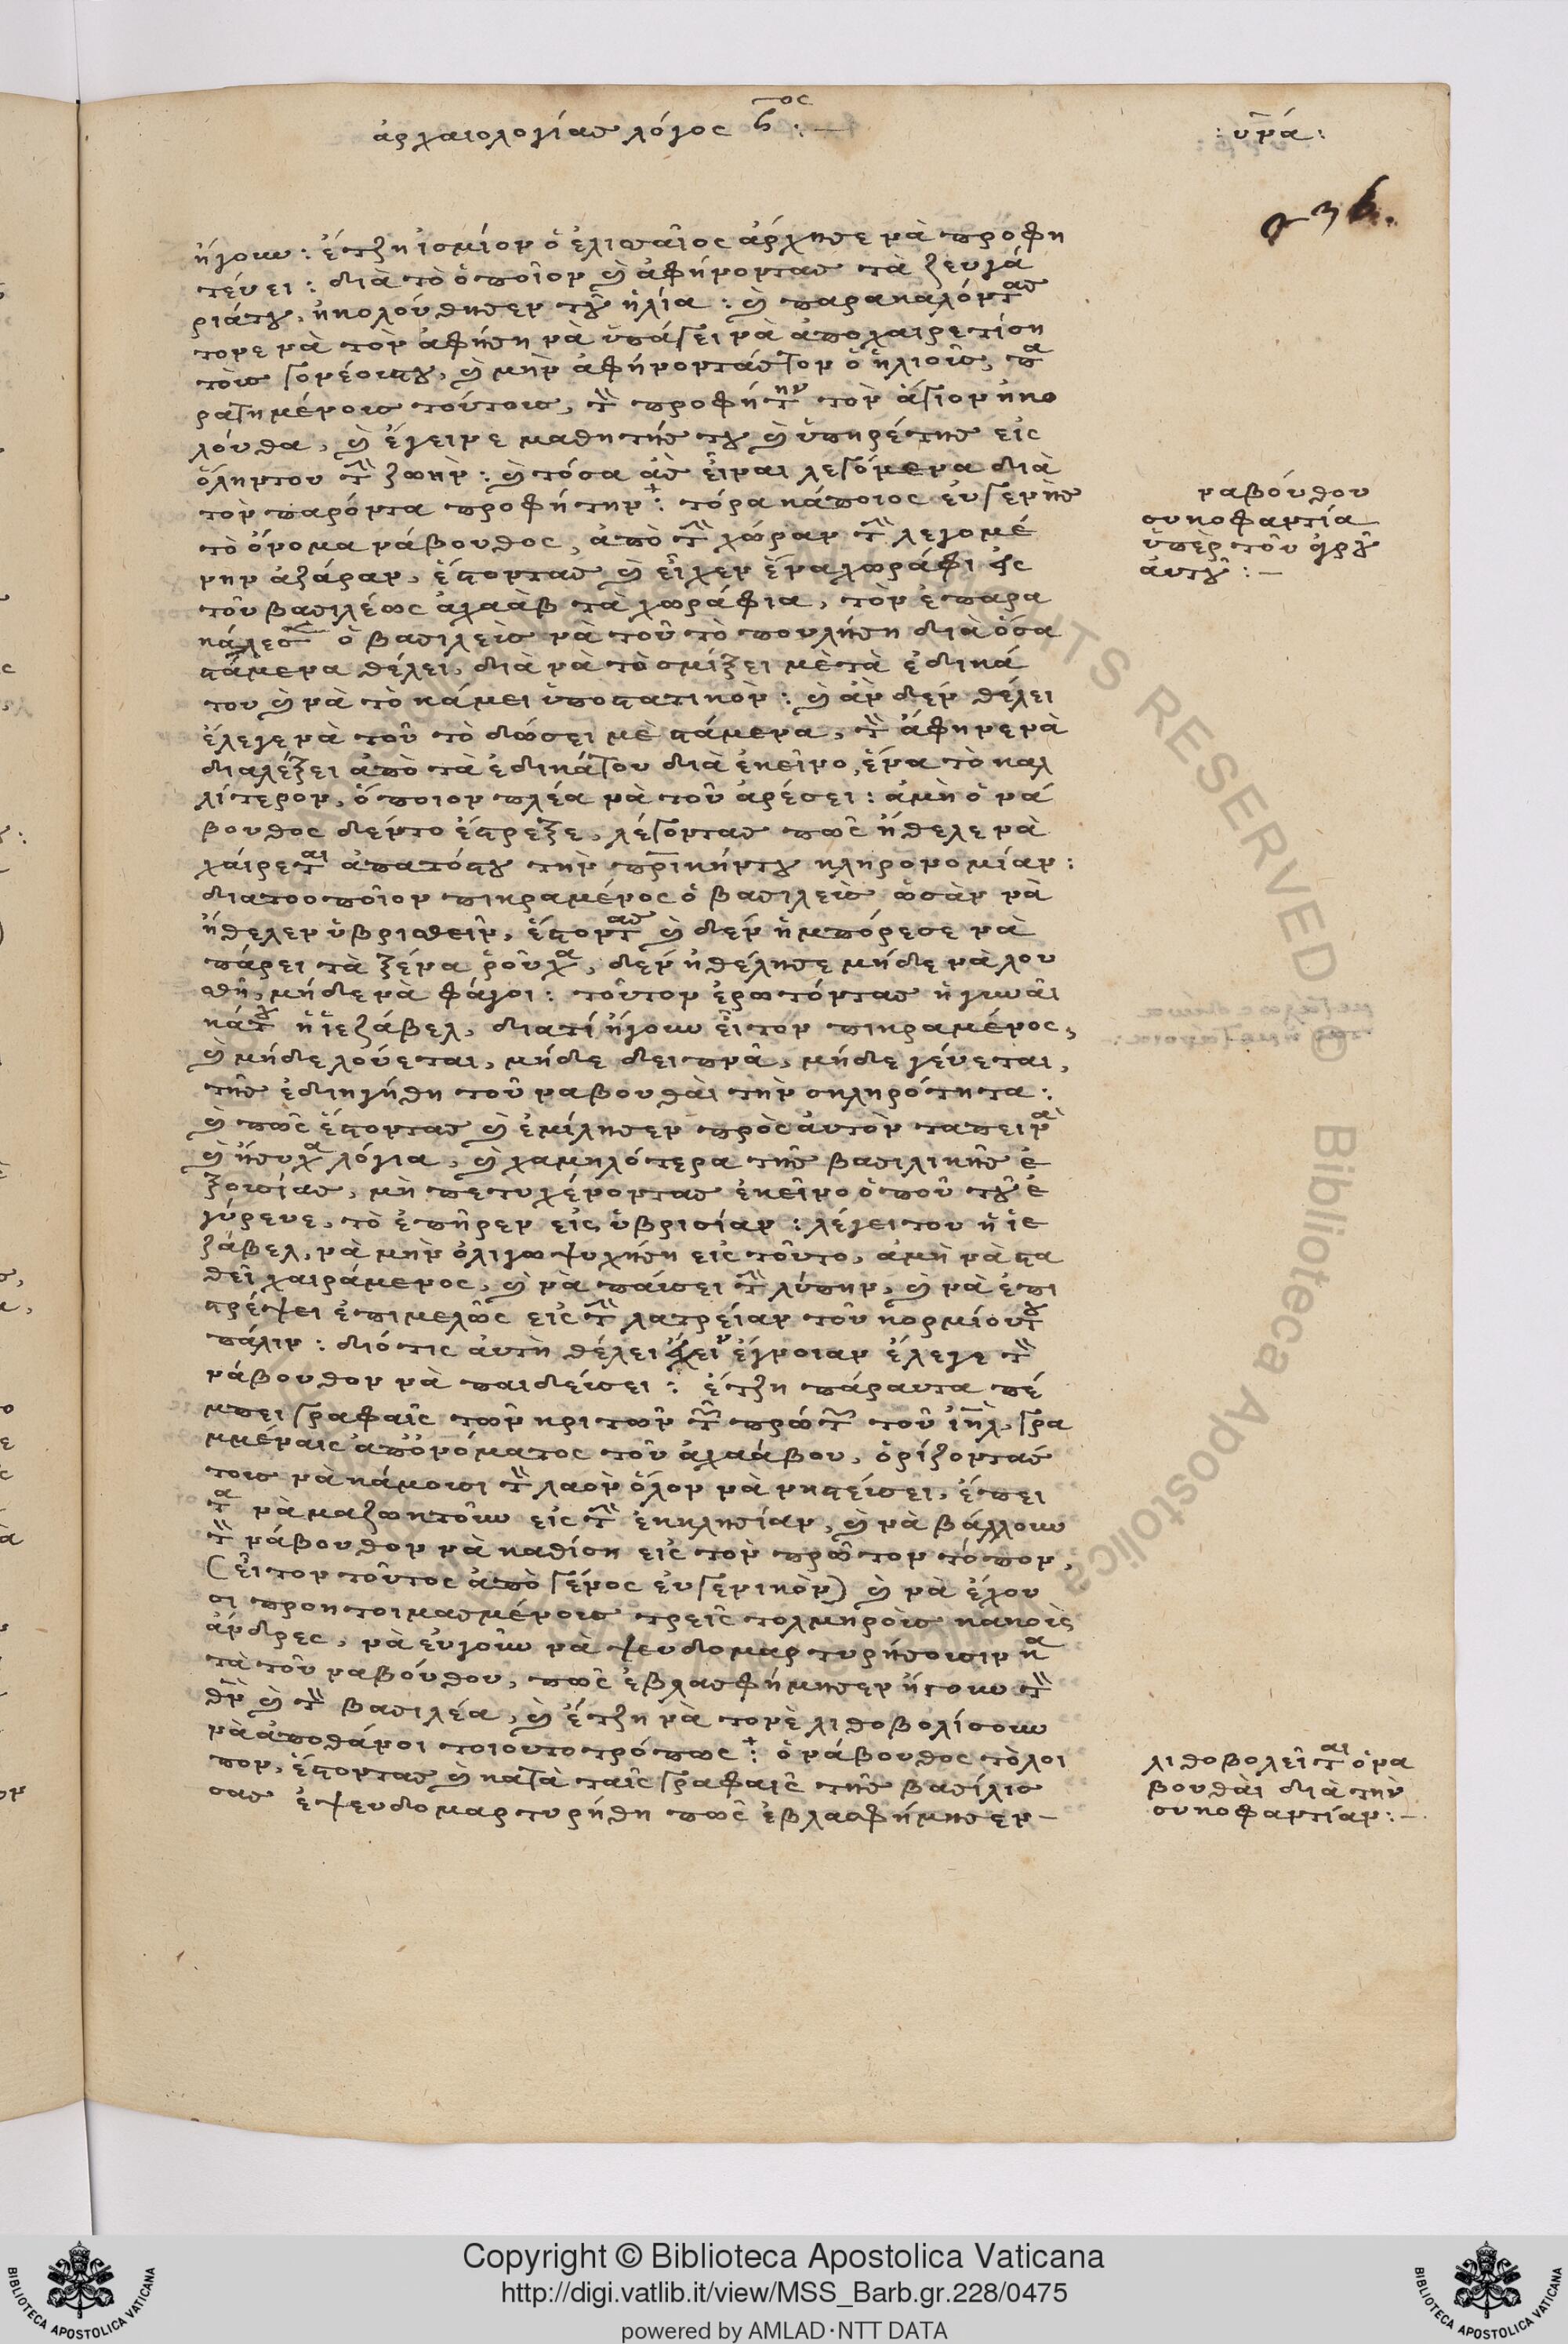 ἀρχαιολογίας λόγος η^ος :—
: υνά :
236.
ἤγουν : ἔτζη ἰσμίον ὁ ἐλισσαῖος ἄρχησε νὰ προφη
τεύει : διὰ τὸ ὁποῖον καὶ ἀφήνοντας τὰ ζευγά
ριάτου, ἠκολούθησεν τοῦ ἠλία : καὶ παρακαλόντας
τονε νὰ τὸν ἀφήση νὰ ὑπάγει νὰ ἀποχαιρετίση
τοὺς γονέουςτου, καὶ μὴν ἀφήνοντάςτον ὁ ἠλιοὺς, πα
ρατημένους τούτους, τὸν προφήτην τὸν ἅγιον ἠκο
λούθα, καὶ ἔγεινε μαθητής του καὶ ὑπηρέτης εἰς
ὅληντου τὴν ζωὴν : καὶ τόσα ἂς εἶναι λεγόμενα διὰ
τὸν παρόντα προφήτην : τόρα κάποιος εὐγενὴς
τὸ ὄνομα νάβουθος, ἀπὸ τὴν χώραν τὴν λεγομέ
νην ἀζάραν, ἔστοντας καὶ εἶχεν ἕναχωράφι εἰς
τοῦ βασιλέως ἀχαὰβ τὰ χωράφια, τὸν ἐπαρα
κάλεσεν ὁ βασιλεὺς νὰ τοῦ τὸ πουλήση διὰ ὅσα
στάμενα θέλει, διὰ νὰ τὸ σμίξει μὲ τὰ ἐδικά
του καὶ νὰ τὸ κάμει ὑποστατικὸν : καὶ ἂν δὲν θέλει
ἔλεγε νὰ τοῦ τὸ δώσει μὲ στάμενα, τὸν ἄφηνε νὰ
διαλέξει ἀπὸ τὰ ἐδικάτου διὰ ἐκεῖνο, ἕνα τὸ καλ
λίτερον, ὅποιον πλέα νὰ τοῦ ἀρέσει : ἀμὴ ὁ νά
βουθος δέντο ἔστρεξε, λέγοντας πῶς ἤθελε νὰ
χαίρεται ἀπατόςτου τὴν πρικήντου κληρονομίαν :
διατοοποῖον πικραμένος ὁ βασιλεὺς ὡσὰν νὰ
ἤθελεν ὑβρισθεῖν, ἔστοντας καὶ δὲν ἠμπόρεσε νὰ
πάρει τὰ ξένα ῥοῦχα, δὲν ἠθέλησε μήδε νὰ λου
σθῆ, μήδε νὰ φάγοι : τοῦτον ἐρωτόντας ἡ γυναῖ
κάτου ἡ ἰεζάβελ, διατί ἤγουν εἶτον πικραμένος,
καὶ μήδε λούεται, μήδε δειπνᾶ, μήδε γεύεται,
τῆς ἐδιηγήθη τοῦ ναβουθάι τὴν σκληρότητα :
καὶ πῶς ἔστοντας καὶ ἐμίλησεν πρὸς αὐτὸν ταπεινὰ
καὶ ἥσυχα λόγια, καὶ χαμηλότερα τῆς βασιλικῆς ἐ
ξουσίας, μὴ πετυχένοντας ἐκεῖνο ὁποῦ τοῦ ἐ
γύρευε, τὸ ἐπῆρεν εἰς ὑβρισίαν : λέγει του ἡ ἰε
ζάβελ, νὰ μὴν ὀλιγωψυχήση εἰς τοῦτο, ἀμὴ νὰ στα
θεῖ χαιράμενος, καὶ νὰ παύσει τὴν λύπην, καὶ νὰ ἐπι
στρέψει ἐπιμελῶς εἰς τὴν λατρείαν τοῦ κορμίουτου
πάλιν : διότις αὐτὴ θέλει ἔχειν ἔγνοιαν ἔλεγε τὸν
νάβουθον νὰ παιδεύσει : ἔτζη πάραυτα πέ
μπει γραφαῖς τῶν κριτῶν τῶν πρώτων τοῦ ἰηλ, γρα
μμέναις ἀπὀνόματος τοῦ ἀχαάβου, ὁρίζοντάς
τους νὰ κάμουσι τὸν λαὸν ὅλον νὰ νηστεύσει, ἔπει
τα νὰ μαζωκτοῦν εἰς τὴν ἐκκλησίαν, καὶ νὰ βάλλουν
τὸν νάβουθον νὰ καθίση εἰς τὸν πρῶτον τόπον,
(εἶτον τοῦτος ἀπὸ γένος εὐγενικὸν) καὶ νὰ ἔχου
σι προητοιμασμένους τρεῖς τολμηροὺς κακοὺς
ἄνδρες, νὰ εὐγοῦν νὰ ψευδομαρτυρήσουσιν κα
τὰ τοῦ ναβούθου, πῶς ἐβλασφήμησεν ἤγουν τὸν
θν καὶ τὸν βασιλέα, καὶ ἔτζη νὰ τονὲ λιθοβολίσουν
νὰ ἀποθάνοι τοιουτοτρόπως : ὁ νάβουθος τὸ λοι
πὸν, ἔστοντας καὶ κατὰ ταῖς γραφαῖς τῆς βασίλισ
σας ἐψευδομαρτυρήθη πῶς ἐβλασφήμησεν –
ναβούθου
συκοφαντία
ὑπὲρ τοῦ ἀγροῦ
αὐτοῦ : –
λιθοβολεῖται ὁ να
βουθάι διὰ τὴν
συκοφαντίαν : –
RIGHTS RESERVED © Biblioteca Apostolica
Copyright © Biblioteca Apostolica Vaticana
http://digi.vatlib.it/view/MSS_Barb.gr.228/0475
powered by AMLAD·NTT DATA
BIBLIOTECA APOSTOLICA VATICANA
BIBLIOTECA APOSTOLICA VATICANA